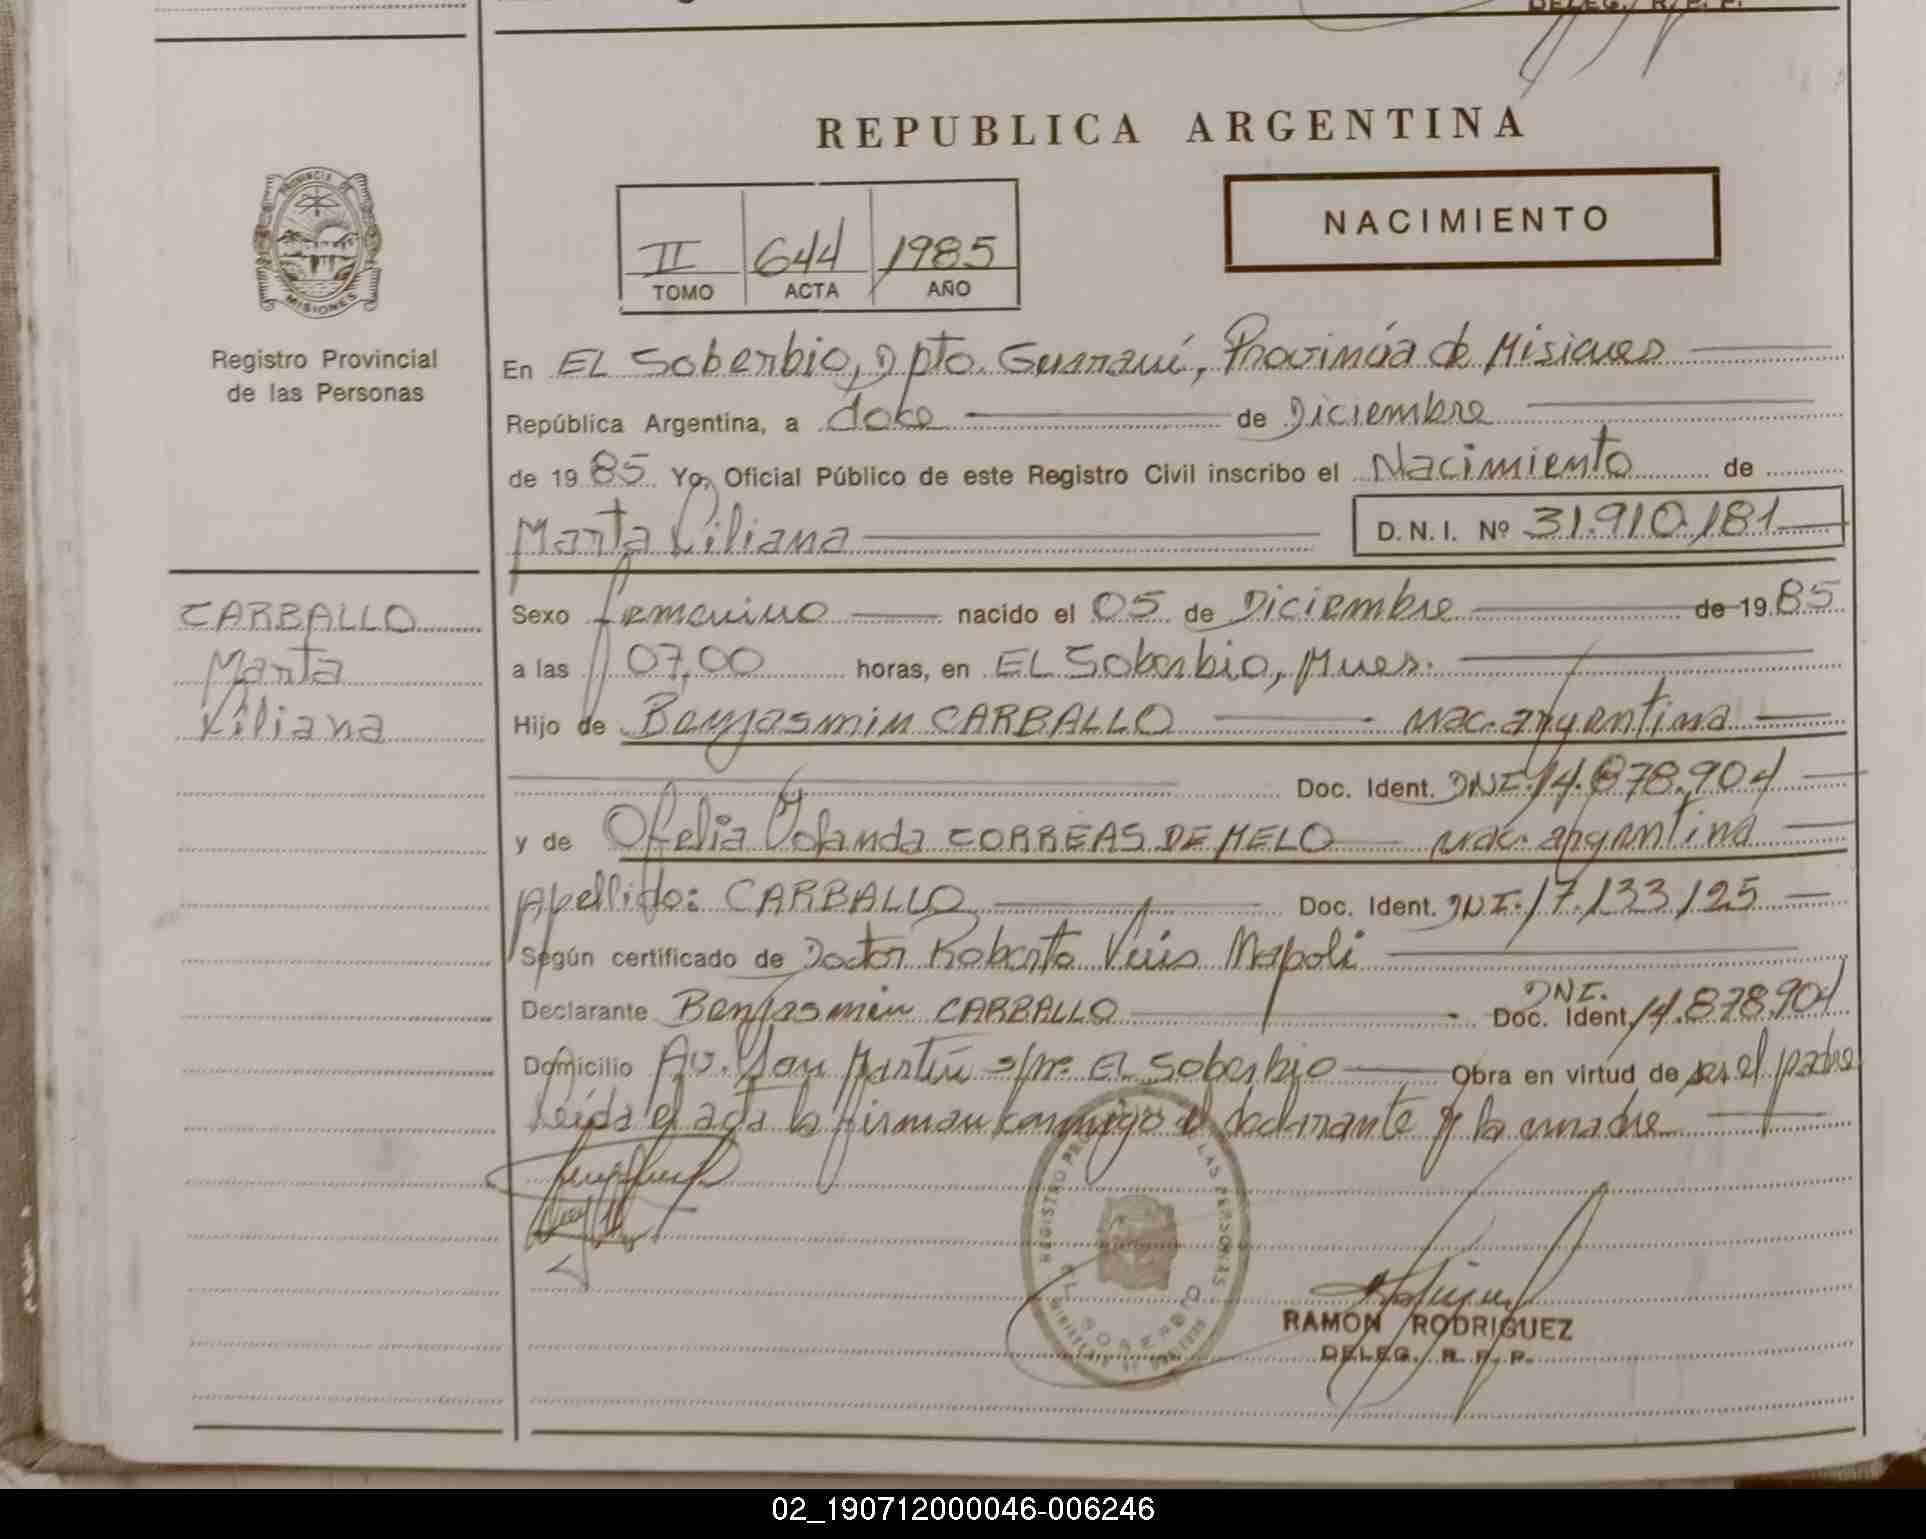 DELEG. R. P. P.
REPUBLICA ARGENTINA
PROVINCIA DE
MISIONES
Registro Provincial
de las Personas
II 644 1985
TOMO ACTA AÑO
NACIMIENTO
En EL Soberbio, Dpto. Guaraní, Provincia de Misiones
República Argentina, a doce de Diciembre
de 1985 Yo, Oficial Público de este Registro Civil inscribo el Nacimiento de
Marta Liliana D.N.I. Nº 31.910.181
CARBALLO
Marta
Liliana
Sexo femenino nacido el 05 de Diciembre de 1985
a las 07,00 horas, en EL Soberbio, Mnes.
Hijo de Benjasmin CARBALLO nac. argentina
Doc. Ident. DNI. 14.878.904
y de Ofelia Yolanda CORREAS DE MELO nac. argentina
Apellido: CARBALLO Doc. Ident. DNI. 17.133.125
Según certificado de Doctor Roberto Luis Napoli
Declarante Benjasmin CARBALLO DNI. Doc. Ident. 14.878.904
Domicilio Av. San Martín s/nº EL Soberbio Obra en virtud de ser el padre
Leída el acta la firman conmigo el declarante y la madre
REGISTRO LAS PERSONAS
EL SOBERBIO
RAMON RODRIGUEZ
DELEG. R. P. P.
02_190712000046-006246